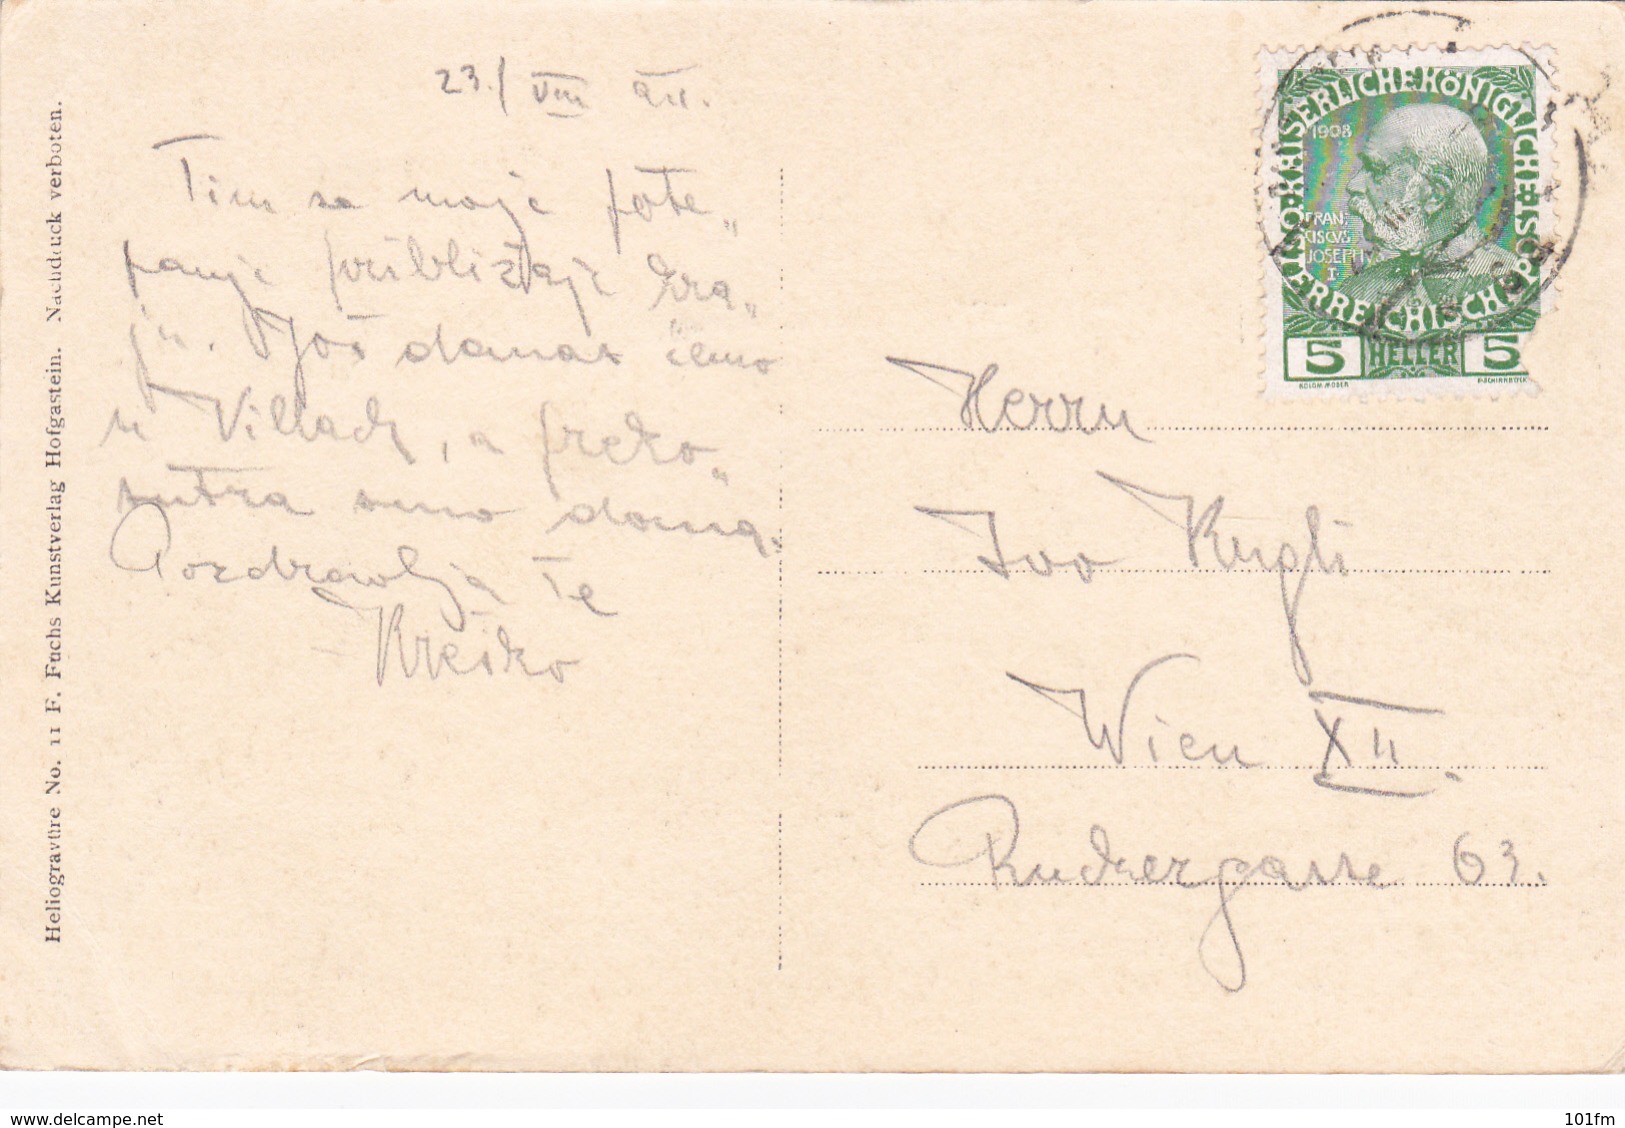 23./VIII 911.
Tim se moje pote„
panje približaje kra„
ju. Još danas ćemo
u Villach, a preko„
sutra smo doma.
Pozdravlja Te
Kreško
Heliogravüre No. 11 F. Fuchs Kunstverlag Hofgastein. Nachdruck verboten.
KAISERLICHE KÖNIGLICHE
ÖSTERREICHISCHE POST
1908
FRAN
CISCVS
JOSEPHVS
I
5 HELLER 5
KOLOM. MOSER
F. SCHIRNBÖCK
Herrn
Ivo Kugli
Wien XII.
Ruckergasse 63.
delcampe.net
101fm